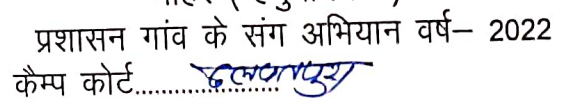 प्रशासन गांव के संग अभियान वर्ष– 2022
कैम्प कोर्ट.................. दलपतपुरा